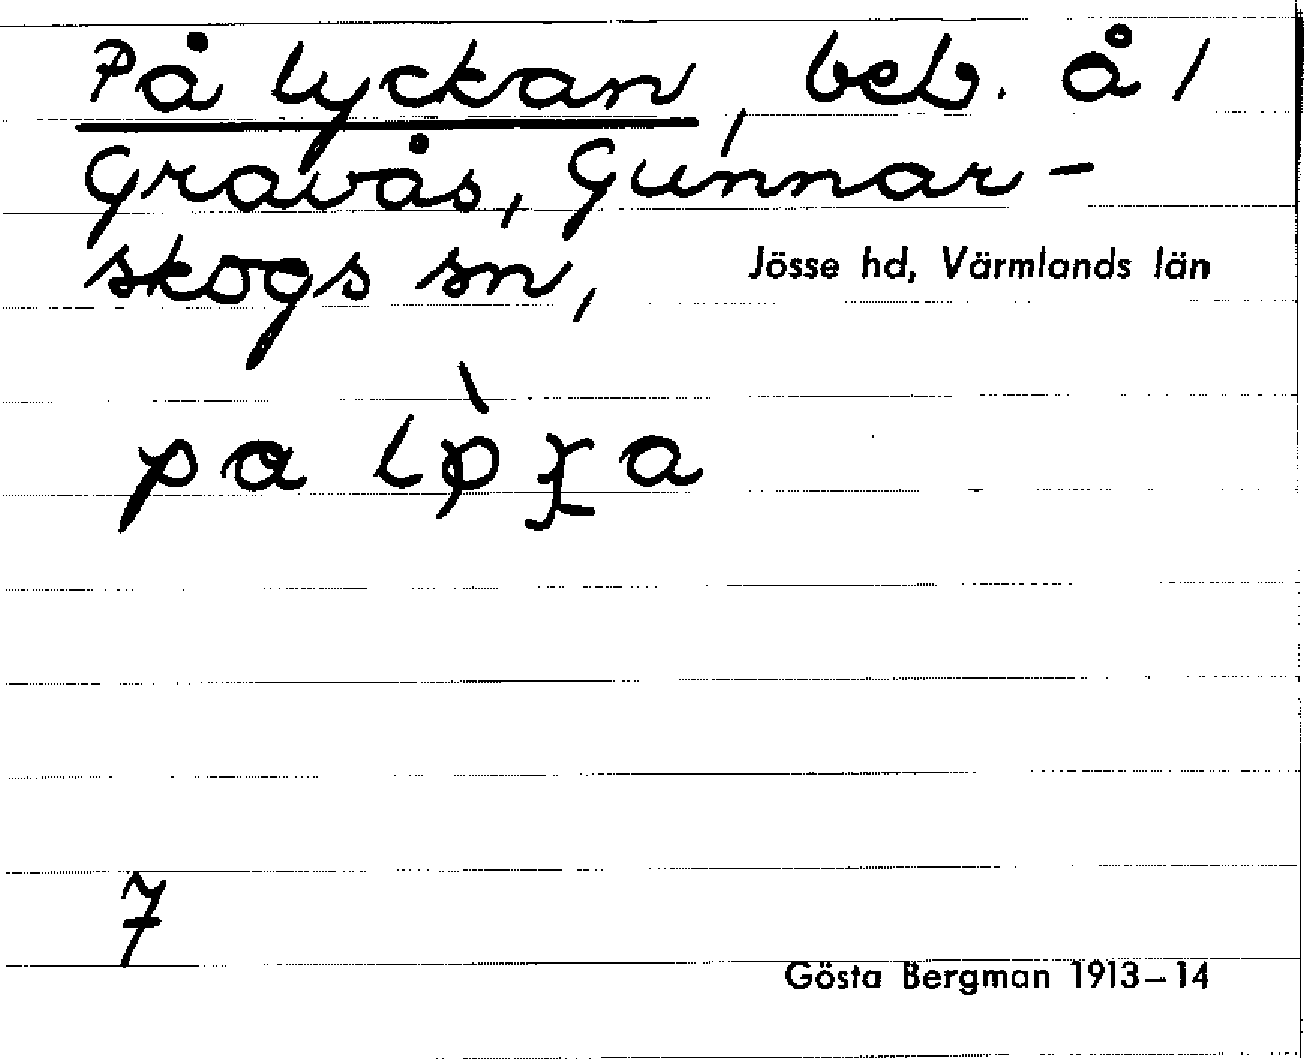 På lyckan, beb. å 1
Gravås, Gunnar-
skogs sn,
Jösse hd, Värmlands län
pa
7
Gösta Bergman 1913–14